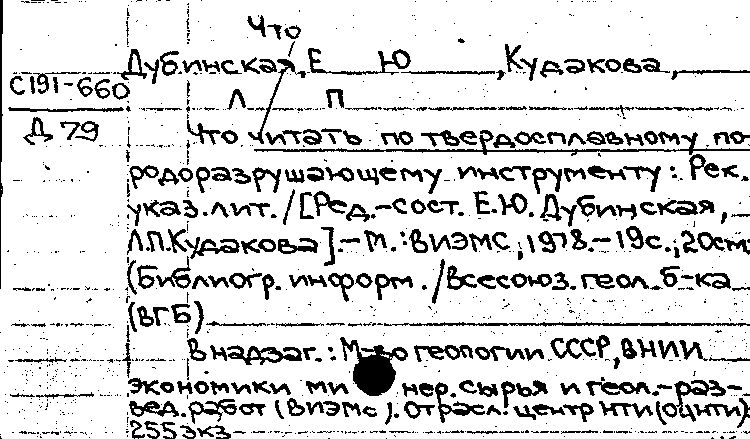 Что
Дубинская, Е Ю , Кудакова,
С191-660
Л П
Д 79
Что читать по твердосплавному по-
родоразрушающему инструменту: Рек.
указ.лит./[Ред.-сост. Е.Ю.Дубинская,
Л.П.Кудакова].-М.:ВИЭМС,1978.-19с.;20см
(Библиогр. информ./Всесоюз.геол.б-ка
(ВГБ)
В надзаг.: М-во геологии СССР, ВНИИ
экономики минер.сырья и геол.-раз-
вед.работ (ВИЭМС). Отрасл. центр НТИ(ОЦНТИ)
255экз